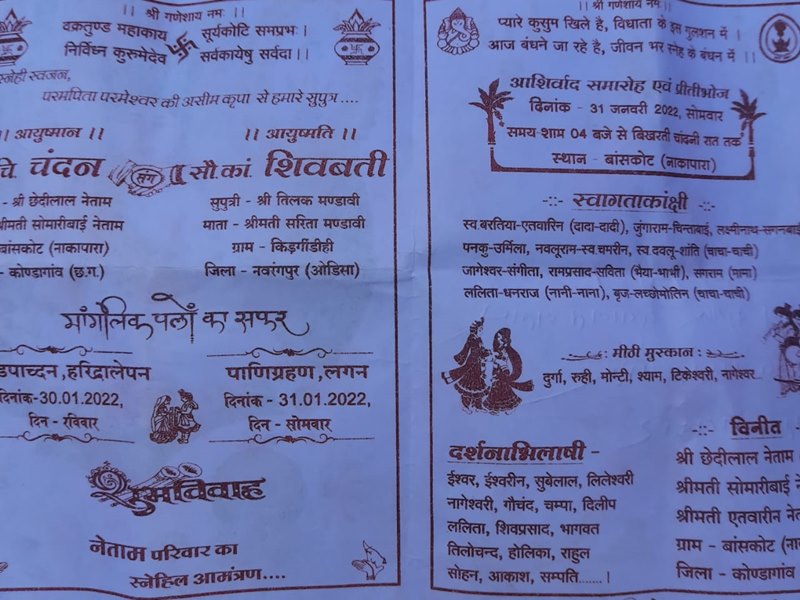 ।। श्री गणेशाय नमः ।।
वक्रतुण्ड महाकाय सूर्यकोटि समप्रभः ।
निर्विध्न कुरुमेदेव सर्वकायेषु सर्वदा ।।
स्नेही स्वजन,
परमपिता परमेश्वर की असीम कृपा से हमारे सुपुत्र ....
।। आयुष्मान ।।
चंदन
- श्री छेदीलाल नेताम
श्रीमती सोमारीबाई नेताम
बांसकोट (नाकापारा)
- कोण्डागांव (छ.ग.)
संग
।। आयुष्मति ।।
सौ.कां. शिवबती
सुपुत्री - श्री तिलक मण्डावी
माता - श्रीमती सरिता मण्डावी
ग्राम - किड़गीडीही
जिला - नवरंगपुर (ओडिसा)
मांगलिक पलों का सफर
हरिद्रालेपन
दिनांक-30.01.2022,
दिन - रविवार
पाणिग्रहण, लगन
दिनांक - 31.01.2022,
दिन - सोमवार
शुभविवाह
नेताम परिवार का
स्नेहिल आमंत्रण....
।। श्री गणेशाय नमः ।।
प्यारे कुसुम खिले है, विधाता के इस गुलशन में ।
आज बंधने जा रहे है, जीवन भर स्नेह के बंधन में ।।
आशिर्वाद समारोह एवं प्रीतीभोज
दिनांक - 31 जनवरी 2022, सोमवार
समय-शाम 04 बजे से बिखरती चांदनी रात तक
स्थान - बांसकोट (नाकापारा)
-::- स्वागताकांक्षी -::-
स्व.बरतिया-एतवारिन (दादा-दादी), जुंगाराम-चिन्ताबाई, लक्ष्मीनाथ-सगनबाई
पनकु-उर्मिला, नवलूराम-स्व.चमरीन, स्व.दवलू-शांति (चाचा-चाची)
जागेश्वर-संगीता, रामप्रसाद-सविता (भैया-भाभी), सगराम (मामा)
ललिता-धनराज (नानी-नाना), बृज-लच्छोमोतिन (चाचा-चाची)
: मीठी मुस्कान :
दुर्गा, रुही, मोन्टी, श्याम, टिकेश्वरी, नागेश्वर
दर्शनाभिलाषी -
ईश्वर, ईश्वरीन, सुबेलाल, लिलेश्वरी
नागेश्वरी, गौचंद, चम्पा, दिलीप
ललिता, शिवप्रसाद, भागवत
तिलोचन्द, होलिका, राहुल
सोहन, आकाश, सम्पति.......।
-::- विनीत
श्री छेदीलाल नेताम
श्रीमती सोमारीबाई
श्रीमती एतवारीन
ग्राम - बांसकोट
जिला - कोण्डागांव